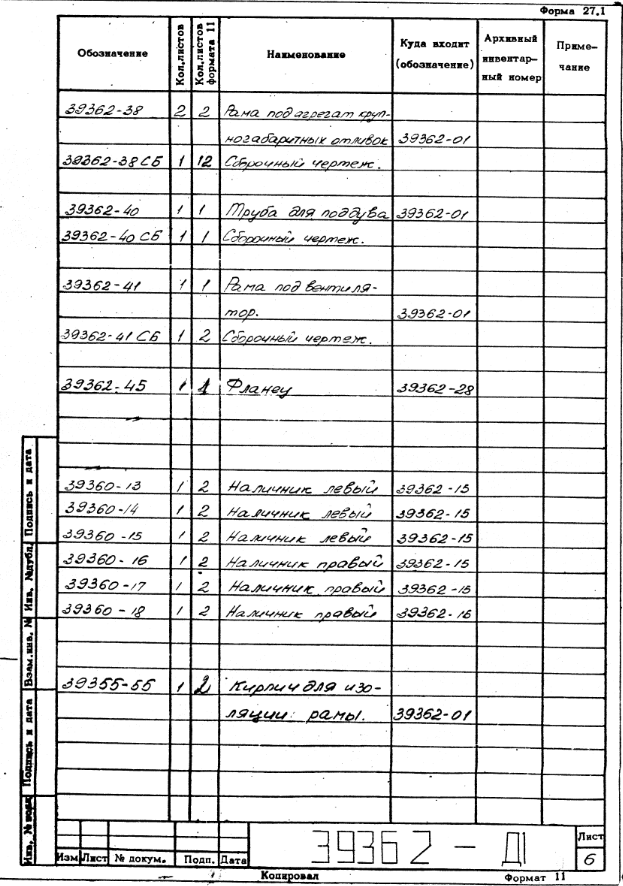 Форма 27.1
Обозначение Кол.листов Кол.листов формата 11 Наименование Куда входит (обозначение) Архивный инвентар-ный номер Приме-чание
39362-38 2 2 Рама под агрегат круп-
ногабаритных отливок 39362-01
39362-38 СБ 1 12 Сборочный чертеж.
39362-40 1 1 Труба для поддува 39362-01
39362-40 СБ 1 1 Сборочный чертеж.
39362-41 1 1 Рама под вентиля-
тор. 39362-01
39362-41 СБ 1 2 Сборочный чертеж.
39362-45 1 1 Фланец 39362-28
39360-13 1 2 Наличник левый 39362-15
39360-14 1 2 Наличник левый 39362-15
39360-15 1 2 Наличник левый 39362-15
39360-16 1 2 Наличник правый 39362-15
39360-17 1 2 Наличник правый 39362-15
39360-18 1 2 Наличник правый 39362-15
39355-55 1 2 Кирпич для изо-
ляции рамы. 39362-01
Инв. № подл. Подпись и дата Взам.инв. № Инв. №дубл. Подпись и дата
Изм Лист № докум. Подп. Дата
39362 - Д1
Лист
6
Копировал Формат 11